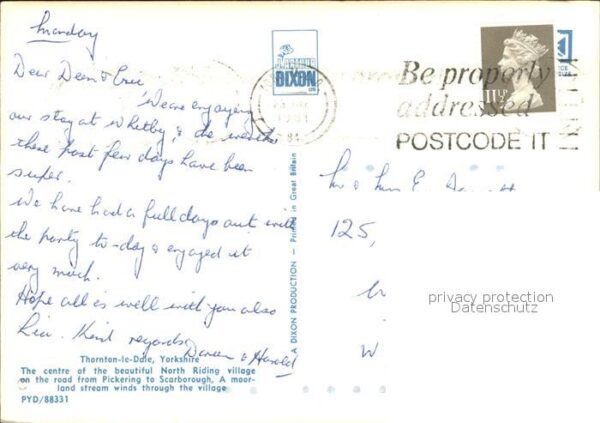 Monday
Dear Dean & Eric
We are enjoying
our stay at Whitby, & the weather
these past few days have been
super.
We have had a full days out with
the party to-day & enjoyed it
very much.
Hope all is well with you also
Kind regards
Doreen & Harold
Thornton-le-Dale, Yorkshire
The centre of the beautiful North Riding village
on the road from Pickering to Scarborough. A moor-
land stream winds through the village
PYD/88331
ARTHUR
DIXON
A DIXON PRODUCTION — Printed in Great Britain
1981
Be properly
addressed
POSTCODE IT
11½P
Mr & Mrs E.
125,
W
privacy protection
Datenschutz